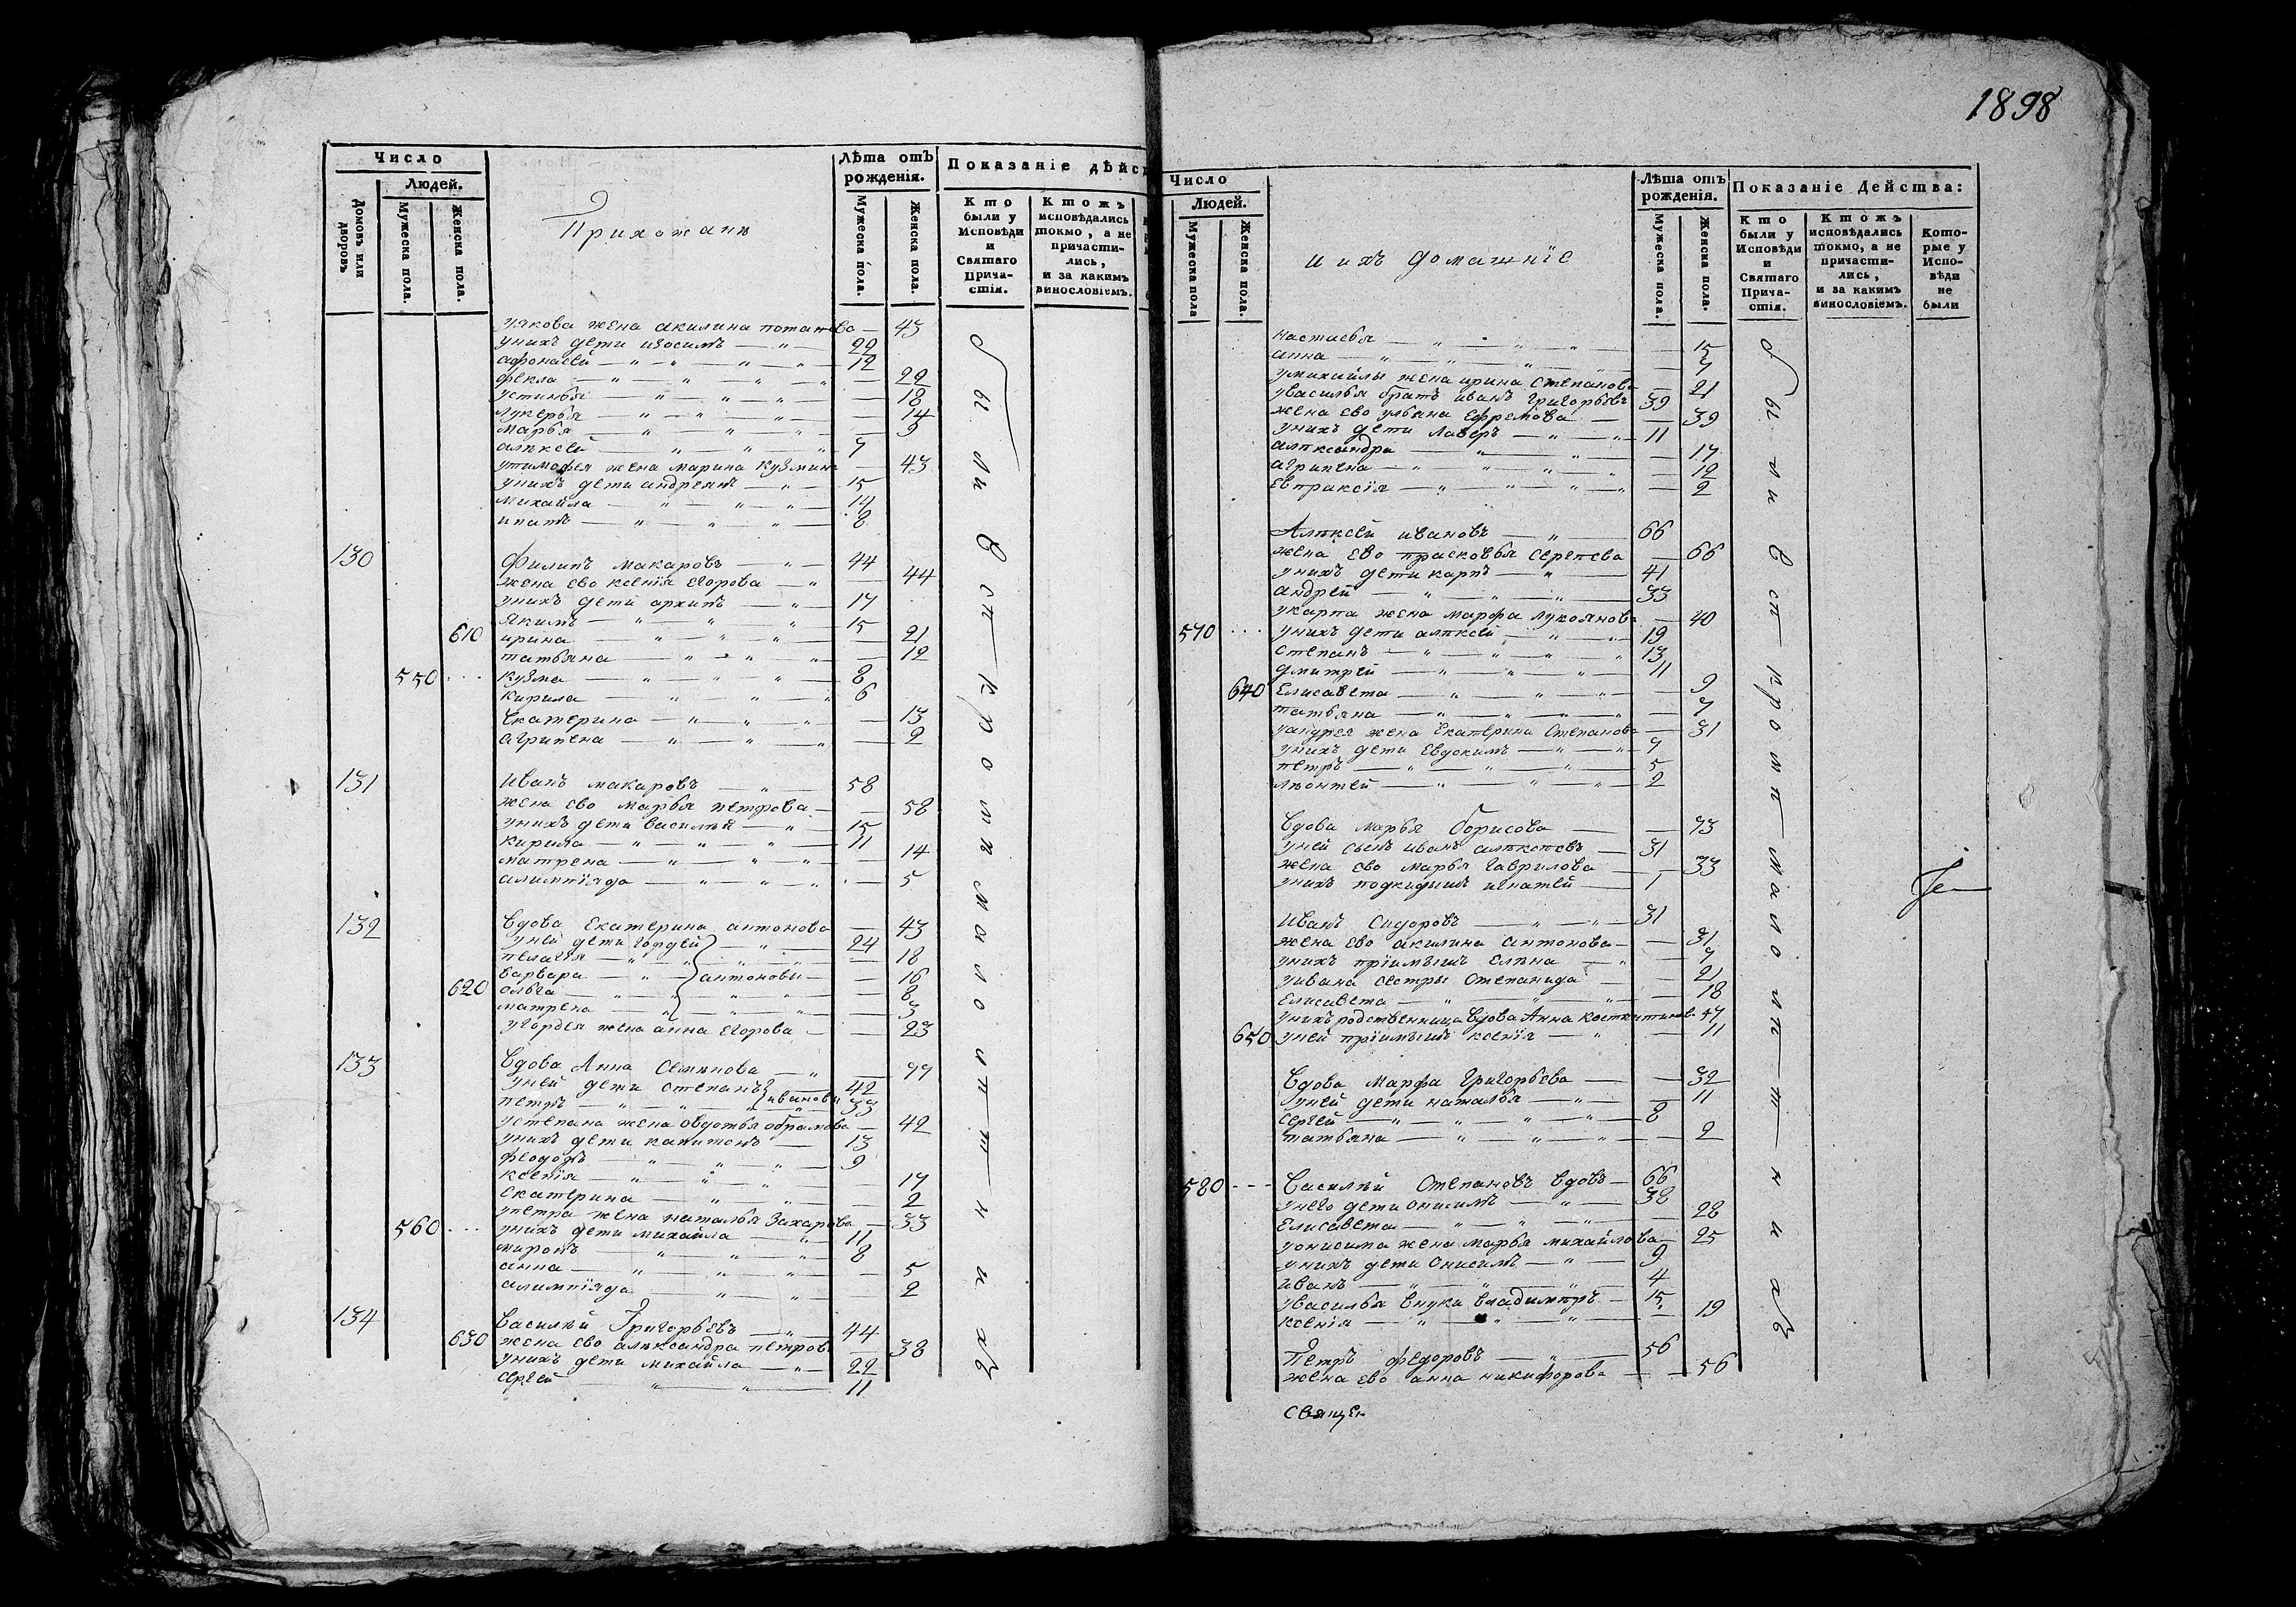 1898
Число
Людей.
Домовъ или дворовъ
Мужеска пола.
Женска пола.
Прихожанѣ
Лѣта отъ рожденія.
Мужеска пола.
Женска пола.
Показаніе дѣйс
Кто были у Исповѣди и Святаго Причастія.
Ктожъ исповѣдались токмо, а не причастились, и за какимъ винословіемъ.
уякова жена акилина потапова — 43
унихъ дети изосимъ — 22
афонасей — 12
фекла — 22
устинья — 18
лукерья — 14
марья — 9
алѣксей — 7
утимофея жена марина кузмина — 43
унихъ дети андреянъ — 15
михайла — 14
ипатъ — 8
130 Филипъ макаровъ — 44
жена ево ксенія егорова — 44
унихъ дети архипъ — 17
якимъ — 15
610 ирина — 21
татьяна — 12
550 кузма — 8
кирила — 6
екатерина — 13
агрипена — 2
131 Иванъ макаровъ — 58
жена ево марья петрова — 58
унихъ дети василѣй — 15
кирила — 11
матрена — 14
алимпіяда — 5
132 Вдова Екатерина антонова — 43
уней дети гордей — 24
пелагія — 18
варвара — антоновы — 16
620 ольга — 8
матрена — 3
угордея жена анна егорова — 23
133 Вдова Анна Семѣнова — 77
уней дети степанъ — 42
петръ — ивановы 33
устепана жена овдотья абрамова — 42
унихъ дети капитонъ — 13
феодоръ — 9
ксенія — 17
екатерина — 2
упетра жена наталья Захарова — 33
560 унихъ дети михайла — 11
миронъ — 8
анна — 5
алимпіяда — 2
134 Василѣй Григорьевъ — 44
630 жена ево алѣксандра петрова — 38
унихъ дети михайла — 22
сергей — 11
были вси кромѣ малолѣтнихъ
Число
Людей.
Мужеска пола
Женска пола.
и ихъ домашніе
Лѣта отъ рожденія.
Мужеска пола.
Женска пола.
Показаніе Действа:
Кто были у Исповѣди и Святаго Причастія.
Ктожъ исповѣдались токмо, а не причастились, и за какимъ винословіемъ.
Которые у Исповѣди не были
настасья — 15
анна — 7
умихайлы жена ирина степанова — 21
увасилья братъ иванъ Григорьевъ 39
жена ево ульяна ефремова — 39
унихъ дети лаверъ — 11
алѣксандра — 17
агрипена — 12
евпраксія — 2
Алѣксей ивановъ — 66
жена ево прасковья сергѣева — 66
унихъ дети карпъ — 41
андрей — 33
укарпа жена марфа лукоянова — 40
570 унихъ дети алѣксей — 19
степанъ — 13
дмитрей — 11
640 Елисавета — 9
татьяна — 7
уандрея жена екатерина Степанова — 31
унихъ дети Евдокимъ — 7
петръ — 5
лѣонтей — 2
Вдова марья борисова — 73
уней сынъ иванъ алѣксѣевъ — 31
жена ево марья гаврилова — 33
унихъ подкидышъ игнатей — 1
Иванъ Сидоровъ — 31
жена ево акилина антонова — 31
унихъ пріимышъ елѣна — 7
уивана сестры Степанида — 21
елисавета — 18
унихъ родственница вдова Анна костентинова 47
650 уней пріимышъ ксенія — 11
Вдова марфа Григорьева — 32
уней дети наталья — 11
сергей — 8
татьяна — 2
580 Василѣй Степановъ вдовъ — 66
унего дети онисимъ — 38
Елисавета — 28
уонисима жена марья михайлова — 25
унихъ дети онисимъ — 9
иванъ — 4
увасилья внуки владимиръ — 15
ксенія — 19
Петръ федоровъ — 56
жена ево анна никифорова — 56
были вси кромѣ малолѣтнихъ
Священ